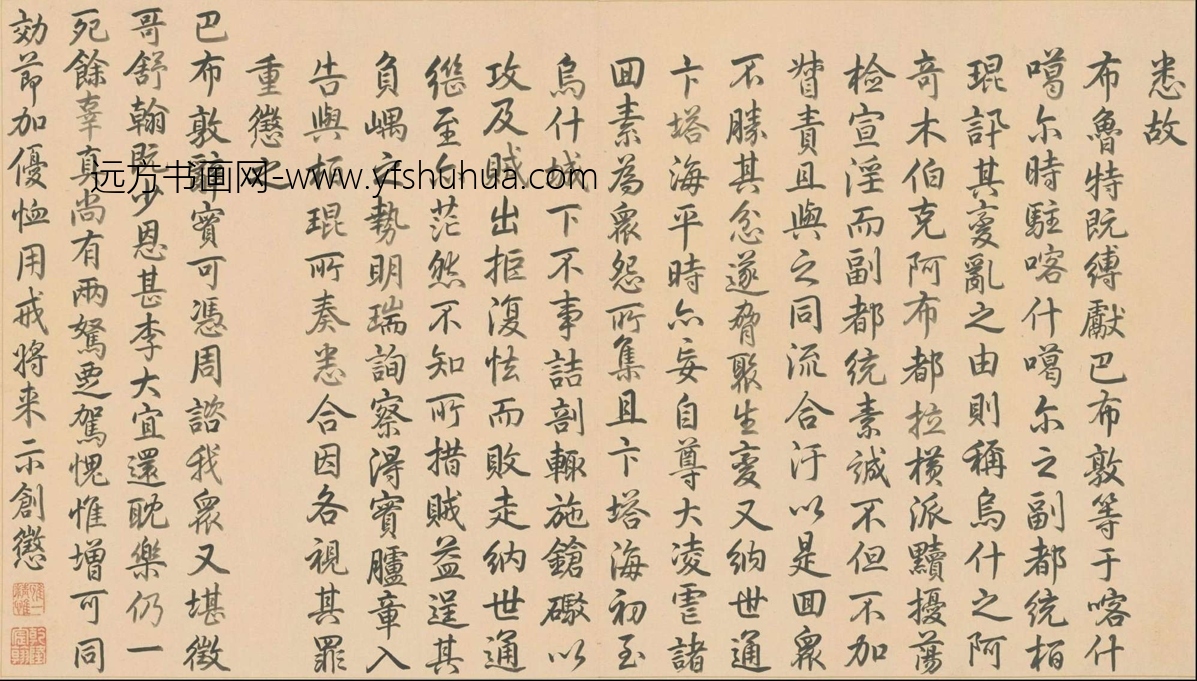 悉故
布魯特既縛獻巴布敦等于喀什
噶尔時駐喀什噶尔之副都统栢
琨訊其變亂之由則稱烏什之阿
竒木伯克阿布都拉横派黷擾蕩
检宣淫而副都统素誠不但不加
督責且與之同流合汙以是囬衆
不勝其忿遂脅聚生變又纳世通
卞塔海平時亦妄自尊大凌雩諸
囬素為衆怨所集且卞塔海初至
烏什城下不事詰剖輙施鎗礮以
攻及賊出拒復怯而敗走纳世通
繼至亦茫然不知所措賊益逞其
負嵎之勢明瑞詢察得實臚章入
告與栢琨所奏悉合因各視其罪
重懲之
巴布敦辭實可憑周諮我衆又堪徴
哥舒翰既少恩甚李大宜還耽樂仍一
死餘辜真尚有兩駑惡駕愧惟增可同
効節加優恤用戒將来示創懲
远方书画网-www.yfshuhua.com